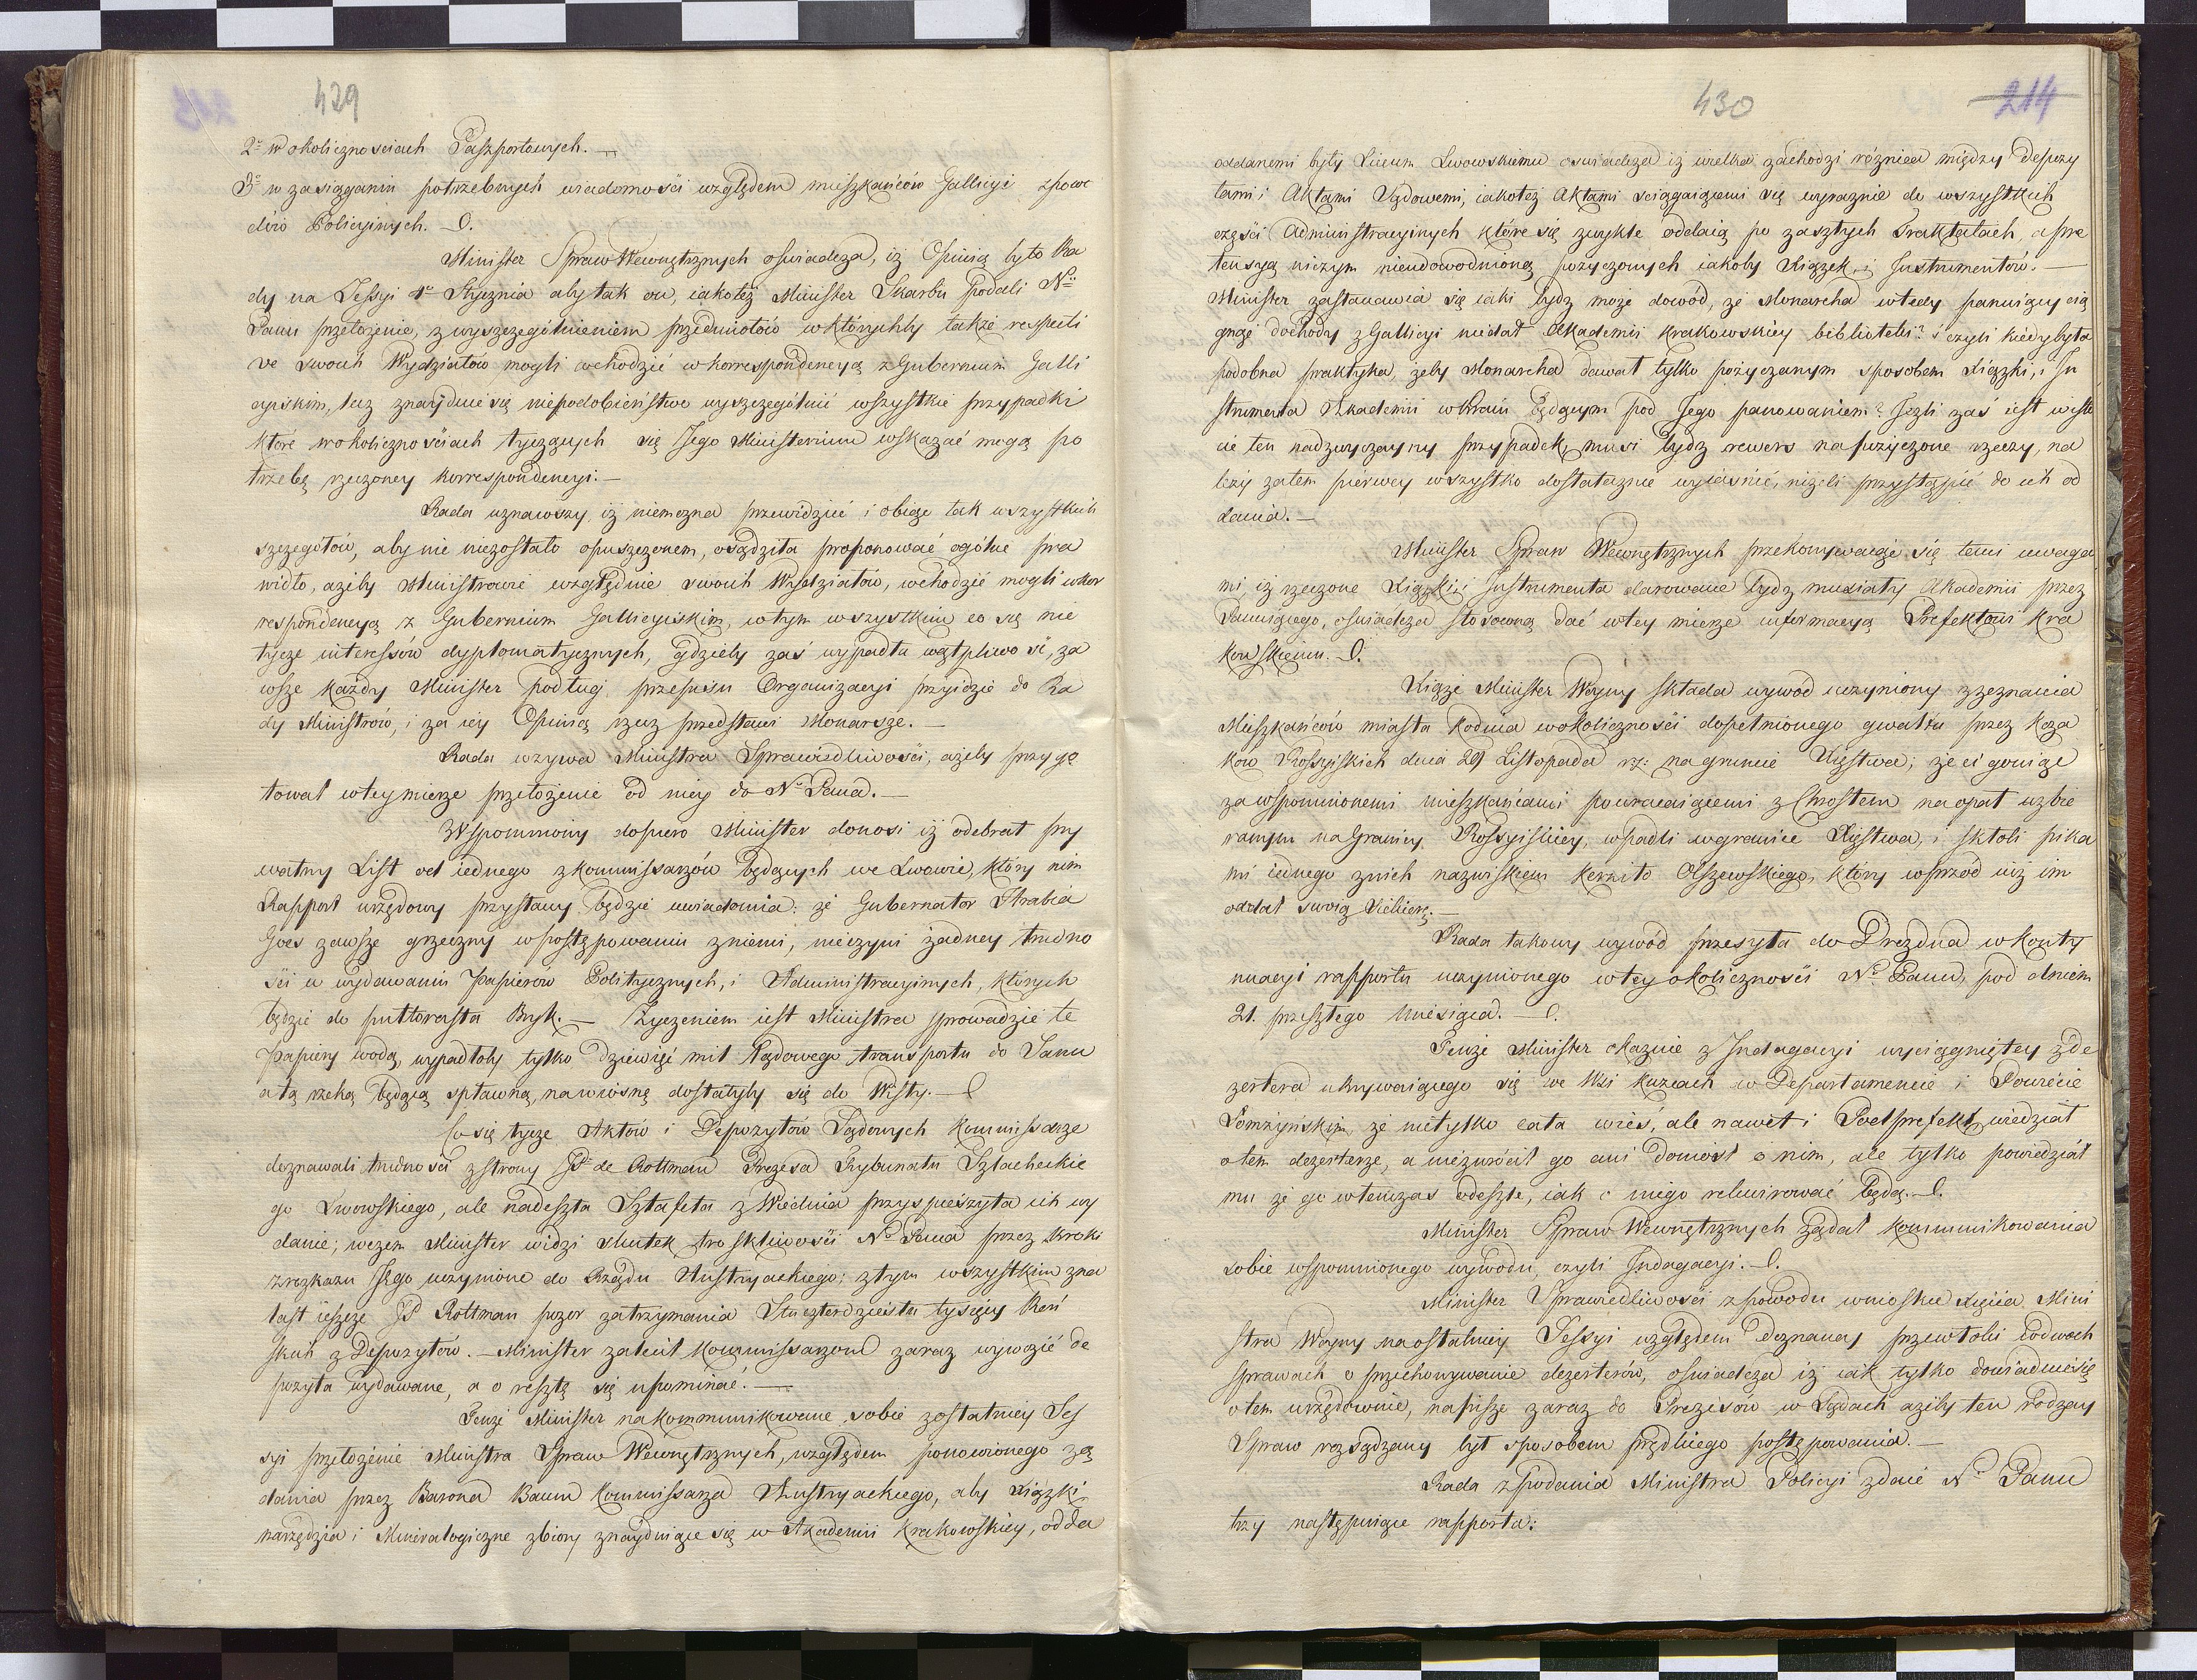 429
2º w okolicznościach Paszportowych. —
3º w zasiąganiu potrzebnych wiadomości względem mieszkańców Gallicyi z powo
dów Policyinych. —D.
Minister Spraw Wewnętrznych oświadcza, iż Opinią było Ra
dy na Sessyi 4º Stycznia aby tak on, iakoteż Minister Skarbu podali Nu
Panu przełożenie, z wyszczególnieniem przedmiotów w którychby także respecti
ve swoich Wydziałów mogli wchodzić w korrespondencyą z Gubernium Galli
cyiskim, lecz znayduie się niepodobieństwo wyszczególnić wszystkie przypadki
które w okolicznościach tyczących się Jego Ministerium wskazać mogą po
trzebę rzeczoney korrespondencyi. —
Rada uznawszy, iż niemożna przewidzieć i obiąć tak wszystkich
szczegółów, aby nic niezostało opuszczonem, osądziła proponować ogólne pra
widło, ażeby Ministrowie względnie swoich Wydziałów, wchodzić mogli w kor
respondencyą z Gubernium Gallicyiskim, w tym wszystkim co się nie
tycze interessów dyplomatycznych, gdzieby zaś wypadła wątpliwość, za
wsze każdy Minister podług przepisu Organizacyi przyidzie do Ra
dy Ministrów, i za iéy Opinią rzecz przedstawi Monarsze. —
Rada wzywa Ministra Sprawiedliwości, ażeby przygo
tował w tey mierze przełożenie od niey do Nº Pana. —
Wspomniony dopiero Minister donosi iż odebrał pry
watny List od iednego z kommissarzów będących we Lwowie, który nim
Rapport urzędowy przystany będzie uwiadomia: że Gubernator Hrabia
Goes zawsze grzeczny w postępowaniu z niemi, nieczyni żadney trudno
ści w wydawaniu Papierów Politycznych, i Administracyinych, których
będzie do puttorasta Bryk. — Życzeniem iest Ministra sprowadzić te
Papiery wodą, wypadłoby tylko dziewięć mil Lądowego transportu do Sanu
a tą rzeką będącą spławną, na wiosnę dostałyby się do Wisły. —D
Co się tycze Aktów i Depozytów Sądowych Kommissarze
doznawali trudności z strony JPª de Rottman Prezesa Trybunału Szlacheckie
go Lwowskiego, ale nadeszła Sztafeta z Wiednia przyspieszyła ich wy
danie; w czem Minister widzi skutek troskliwości Nº Pana przez kroki
z rozkazu Jego uczynione do Rządu Austryackiego; z tym wszystkim zna
lazł ieszcze JP Rottman pozor zatrzymania Stu czterdziestu tysięcy Reń
skich z Depozytów. — Minister zalecił Kommissarzom zaraz wywozić de
pozyta wydawane, a o resztę się upominać. —
Tenże Minister na kommunikowane sobie z ostatniey Ses
syi przełożenie Ministra Spraw Wewnętrznych, względem ponowionego żą
dania przez Barona Baum Kommissarza Austryackiego, aby Xiążki
narzędzia i Mineralogiczne zbiory znayduiące się w Akademii Krakowskiey, odda
430
214
oddanemi były Liceum Lwowskiemu oświadcza iż wielka zachodzi różnica między Depozy
tami i Aktami Sądowemi, iakoteż Aktami sciągaiącemi się wyraznie do wszystkich
części Administracyinych które się zwykle oddaią po zaszłych Traktatach, a pre
tensyą niczym nieudowodnioną pożyczonych iakoby Xiążek, i Instrumentów. —
Minister zastanawia się iaki bydz może dowód, że Monarcha wtedy panuiący cią
gnąc dochody z Gallicyi niedał Akademii Krakowskiey biblioteki? czyli kiedy była
podobna praktyka, żeby Monarcha dawał tylko pożyczanym sposobem Xiążki, i In
strumenta Akademii w Kraiu będącym pod Jego panowaniem? Jeżli zaś iest w isto
cie ten nadzwyczayny przypadek, musi bydz rewers na pożyczone rzeczy, na
leży zatem pierwey wszystko dostatecznie wyiaśnić, niżeli przystąpić do ich od
dania. —
Minister Spraw Wewnętrznych przekonywaiąc się temi uwaga
mi iż rzeczone Xiążki i Instrumenta darowane bydz musiały Akademii przez
Panuiącego, oświadcza stosowną dać w tey mierze informacyą Prefektowi Kra
kowskiemu. —D.
Xiąże Minister Woyny składa wywód uczyniony z zeznania
Mieszkańców miasta Kodnia w okoliczności dopełnionego gwałtu przez Koza
ków Rossyiskich dnia 29 Listopada r.z: na gruncie Xięstwa; że ci goniąc
za wspomnionemi mieszkańcami powracaiącemi z Chrostem na opał uzbie
ranym na Granicy Rossyiskiey, wpadli w granice Xięstwa, i skłoli pika
mi iednego z nich nazwiskiem Olszewskiego, który wprzód niż im
oddał swoią Siekierę. —
Rada takowy wywód przesyła do Drezdna w konty
nuacyi rapportu uczynionego w tey okoliczności Nº Panu, pod dniem
21. przeszłego Miesiąca. —D.
Tenże Minister okazuie z Indagacyi wyciągniętey z de
zertera ukrywaiącego się we Wsi Kuzcach w Departamencie i Powiecie
Łomżyńskim, że nietylko cała wieś, ale nawet i Podprefekt wiedział
o tem dezerterze, a niezwrócił go ani doniósł o nim, ale tylko powiedział
mu że go wtenczas odeszle, iak o niego rekwirować będą. —D.
Minister Spraw Wewnętrznych żądał kommunikowania
sobie wspomnionego wywodu, czyli Indagacyi. —D.
Minister Sprawiedliwości z powodu wniosku Xięcia Mini
stra Woyny na ostatniey Sessyi względem doznaney przewłoki w dwóch
sprawach o przechowywanie dezerterów, oświadcza iż iak tylko dowiadniesię
o tem urzędownie, napisze zaraz do Prezesów w Sądach ażeby ten rodzay
Spraw rozsądzany był sposobem prędkiego postępowania. —
Rada z Podania Ministra Policyi zdaie Nº Panu
trzy następuiące rapporta: